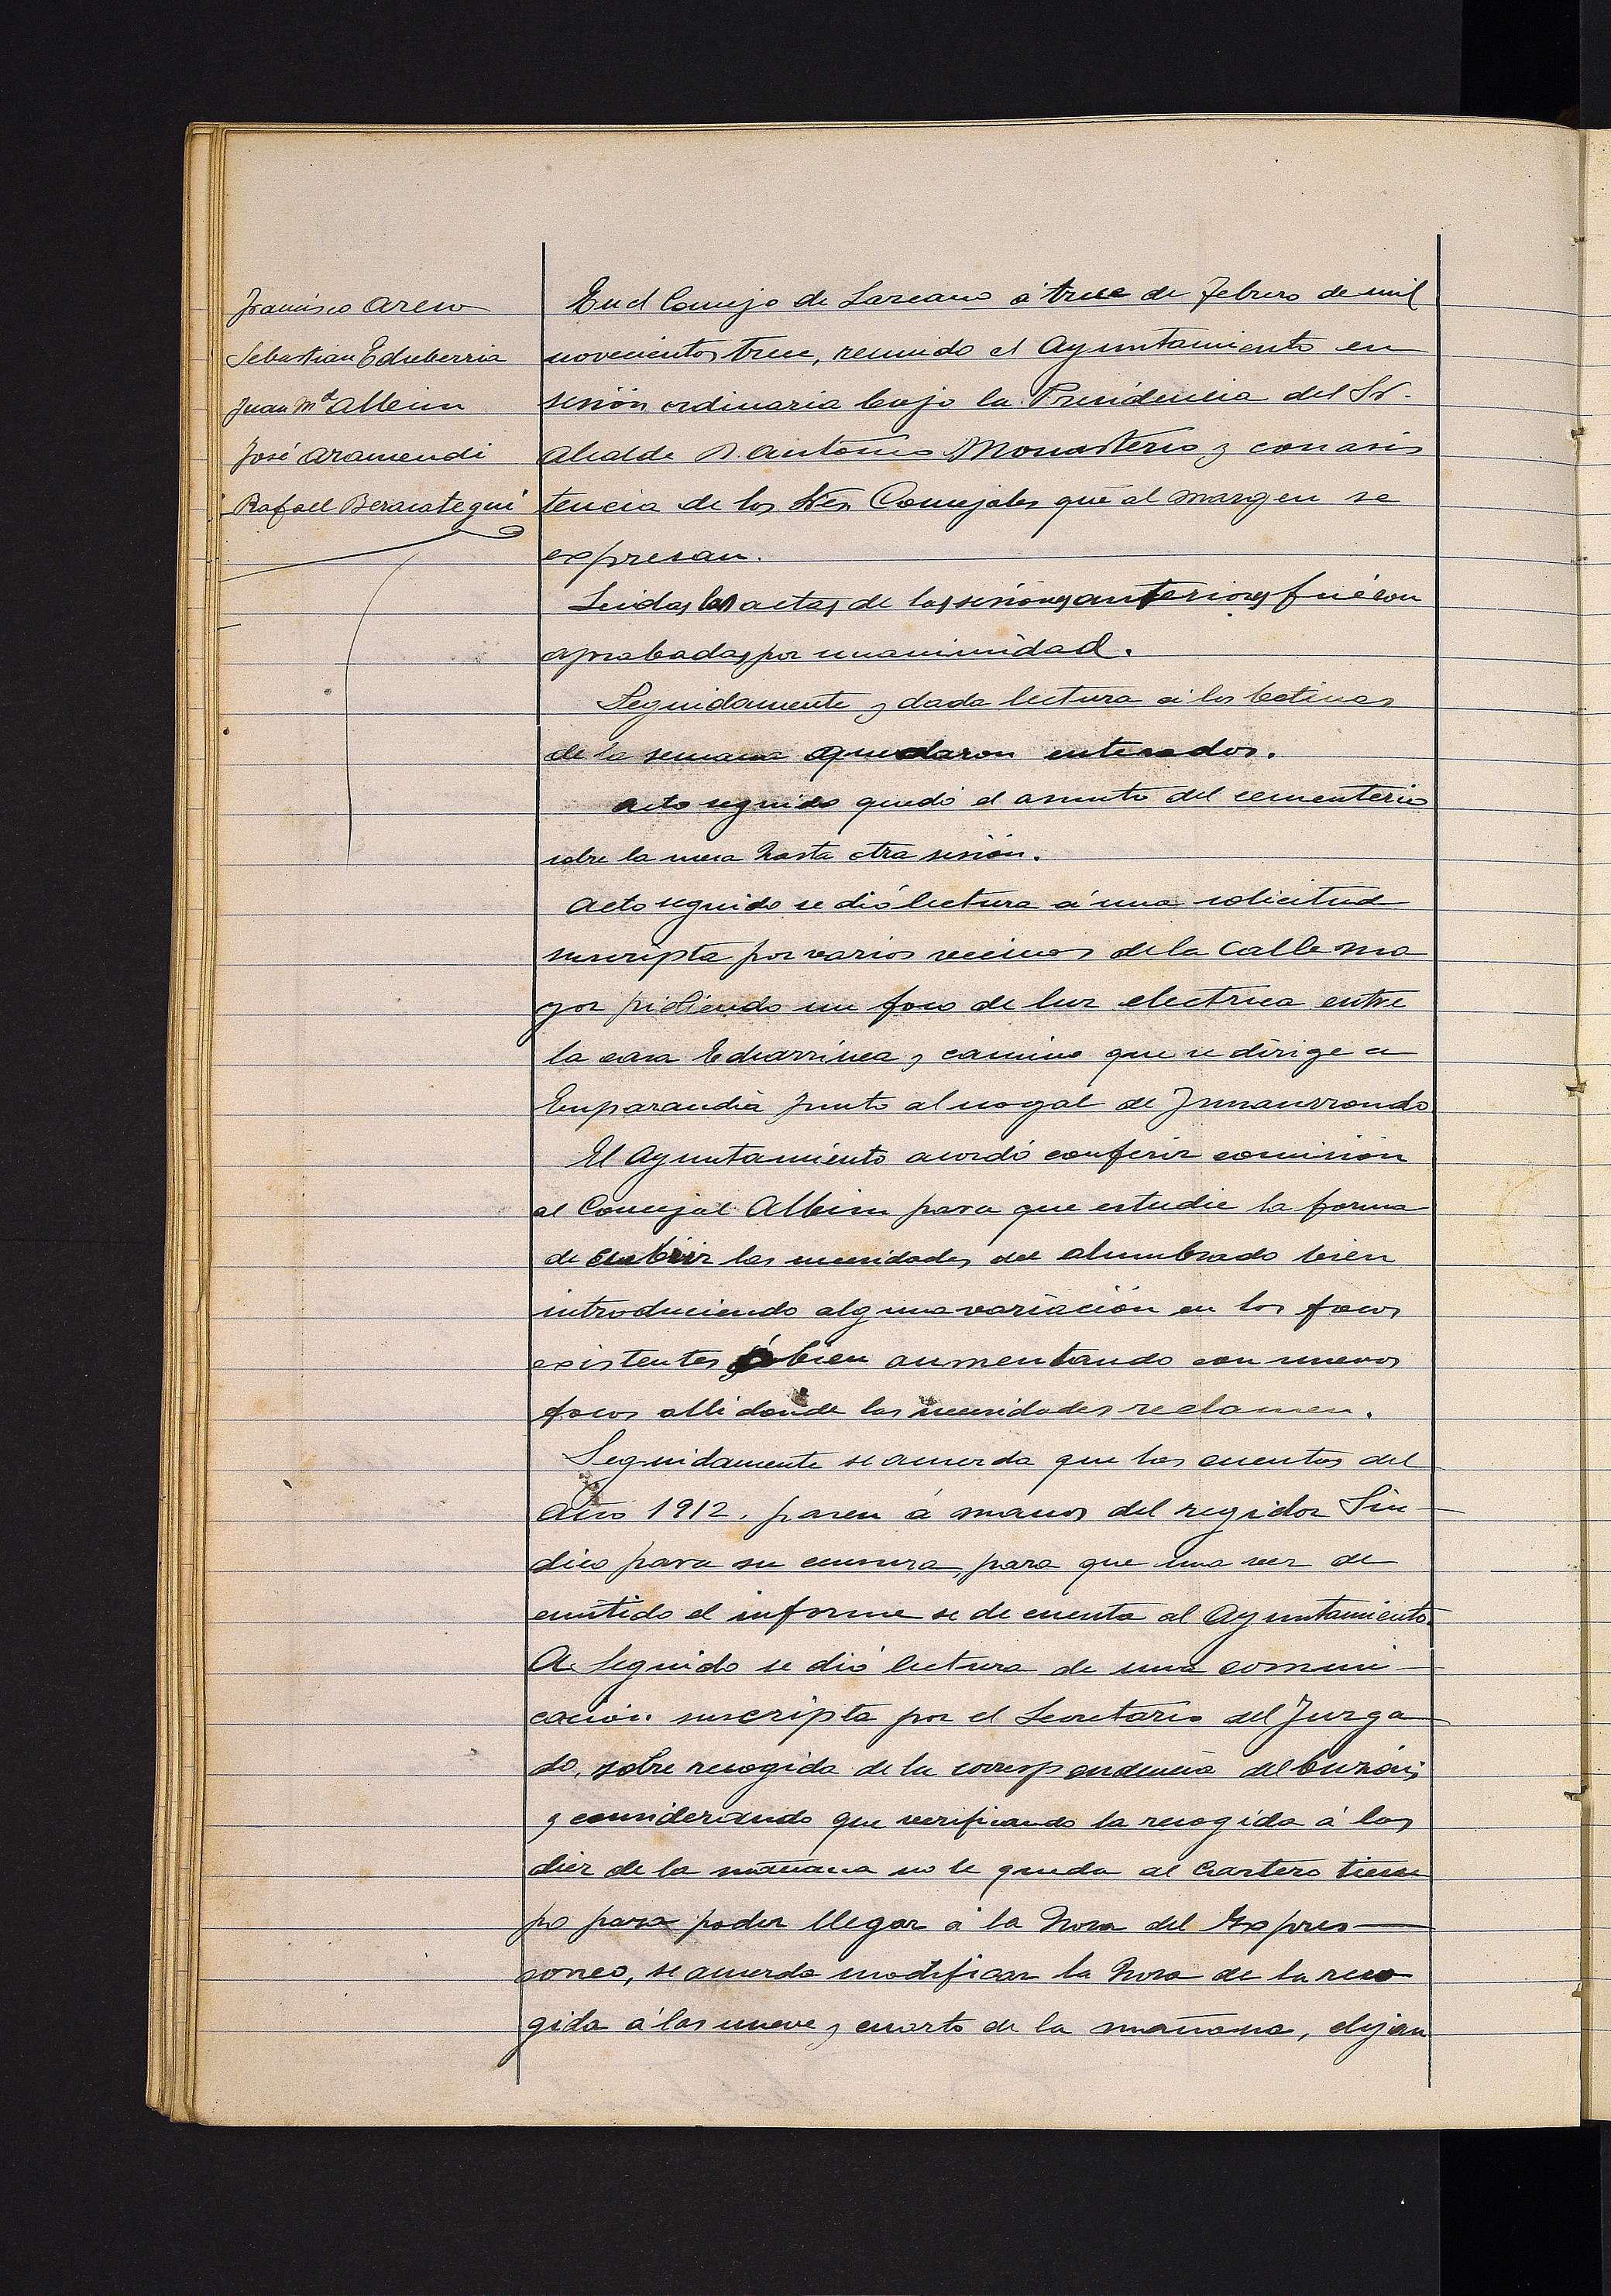 Francisco Areso
Sebastian Echeberria
Juan Mª Albisu
José Aramendi
Rafael Berasategui
En el Concejo de Lazcano á trece de Febrero de mil
novecientos trece, reunido el Ayuntamiento en
sesión ordinaria bajo la Presidencia del Sr.
Alcalde D. Antonio Monasterio y con asis
tencia de los Sres Concejales que al margen se
expresan.
Leidas las actas de las sesiones anteriores fuéron
aprobadas por unanimidad.
Seguidamente y dada lectura á los boletines
de la semana quedaron enterados.
Acto seguido quedó el asunto del cementerio
sobre la mesa hasta otra sesión.
Acto seguido se dió lectura á una solicitud
suscripta por varios vecinos de la Calle ma
yor pidiendo un foco de luz electrica entre
la casa Echarrinea y camino que se dirige a
Emparandia junto al nogal de
El Ayuntamiento acordó conferir comisión
al Concejal Albisu para que estudie la forma
de cubrir las necesidades del alumbrado bien
introduciendo alguna variación en los focos
existentes ó bien aumentando con nuevos
focos alli donde las necesidades reclamen.
Seguidamente se acuerda que las cuentas del
Año 1912, pasen á manos del regidor Sin-
dico para su censura, para que una vez de
emitido el informe se de cuenta al Ayuntamiento.
A. Seguido se dió lectura de una comuni-
cación suscripta por el Secretario del Juzga
do, sobre recogida de la correspondencia del buzón
y considerando que verificando la recogida á las
diez de la mañana no le queda al Cartero tiem
po para poder llegar á la hora del Expres-
correo, se acuerda modificar la hora de la reco
gida á las nueve y cuarto de la mañana, dejan